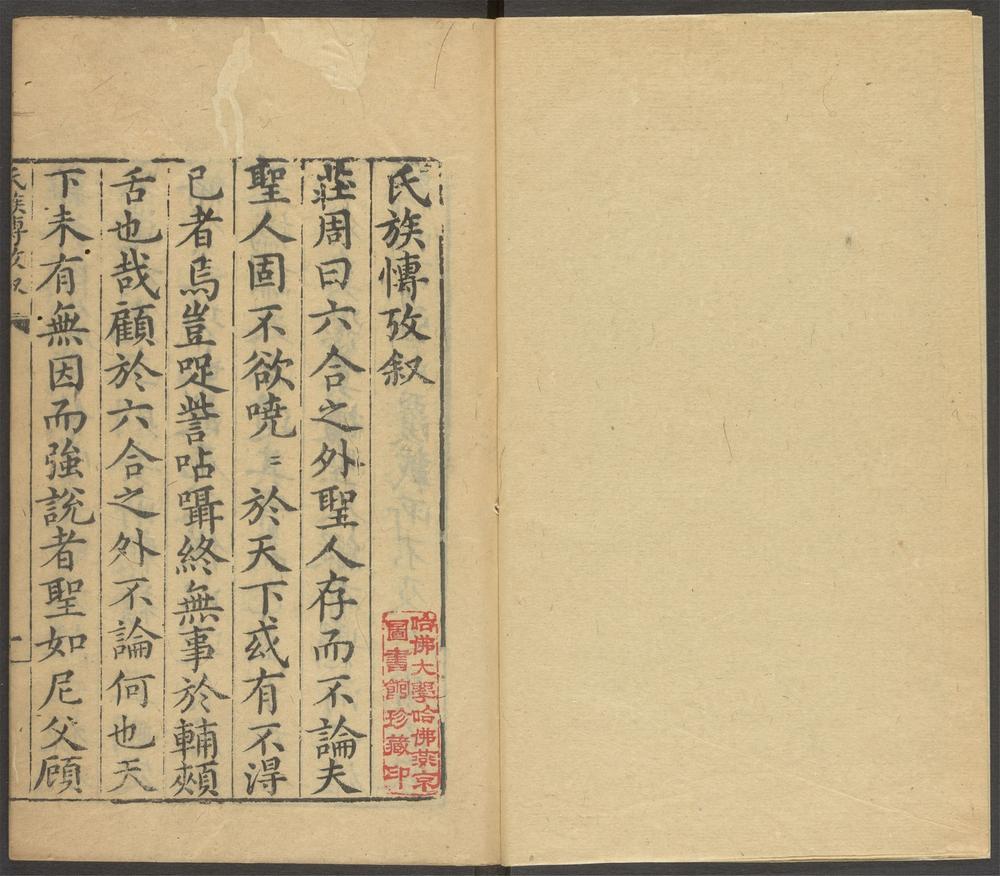 氏族慱攷叙
莊周曰六合之外聖人存而不論夫
聖人固不欲嘵〻於天下或有不得
已者焉豈哫訾呫聶終無事於輔頰
舌也哉顧於六合之外不論何也天
下未有無因而強說者聖如尼父顧
氏族慱攷叙
一
哈佛大學哈佛燕京
圖書館珍藏印